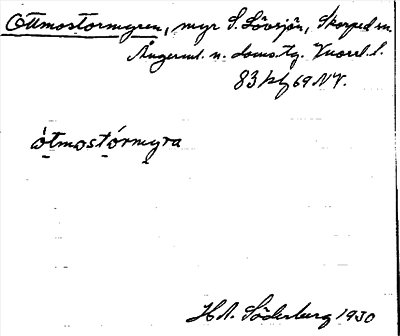 Ottmostormyren, myr S. Lövsjön, Skorped sn
Ångerml. n. doms.tg. Vuorel. l.
83 hkf 69 NV.
òtmostórmyra
H.A. Söderberg 1930